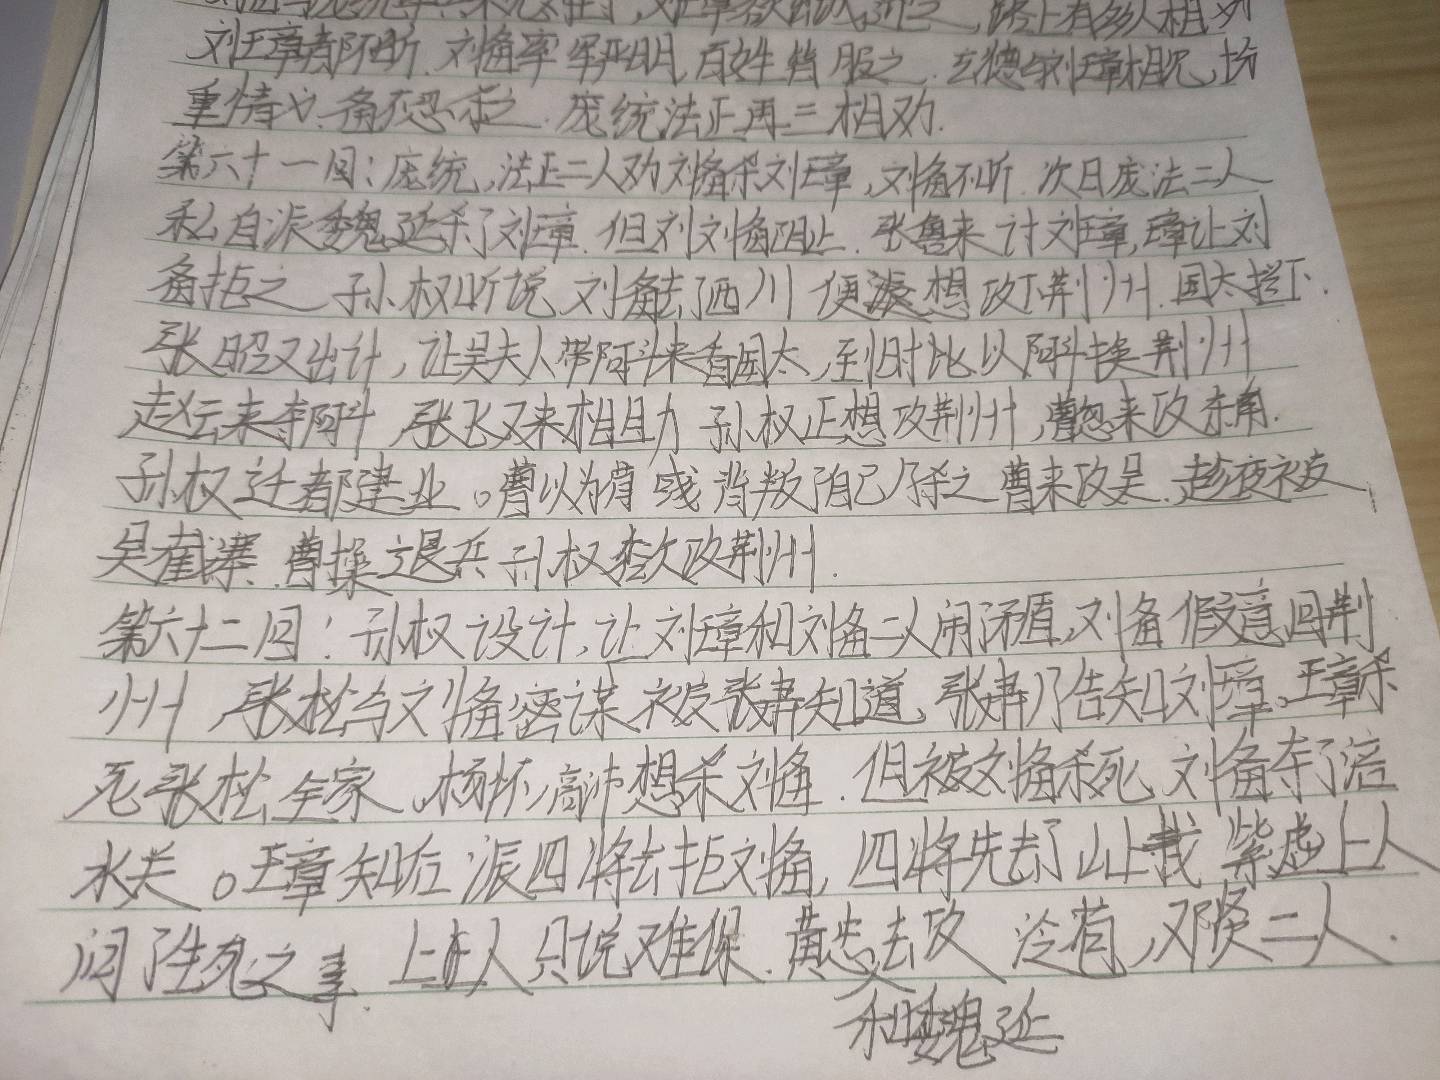 路上有多人相劝
刘璋都不听.刘备军军严明,百姓皆服之.玄德与刘璋相见,均
重情义.备不忍杀之.庞统法正再三相劝.
第六十一回:庞统,法正二人劝刘备杀刘璋,刘备不听.次日庞法二人
私自派魏延杀了刘璋.但刘刘备阻止.张鲁来讨刘璋,璋让刘
备拒之 孙权听说 刘备去了西川 便派想攻下荆州.国太拦下.
张昭又出计,让吴夫人带阿斗来看国太,到时比以阿斗换荆州
赵云来夺阿斗,张飞又来相助 孙权正想攻荆州,曹忽来攻东南.
孙权迁都建业。曹以为荀彧背叛自己,杀之 曹来攻吴.趁夜被
吴截寨.曹操退兵 孙权欲攻荆州.
第六十二回:孙权设计,让刘璋和刘备二人闹矛盾,刘备假意回荆
州,张松与刘备密谋 被张肃知道,张肃乃告知刘璋。璋杀
死张松全家.杨怀高沛想杀刘备.但被刘备杀死,刘备夺了涪
水关。璋知后 派四将去拒刘备,四将先去了山上找 紫虚上人
问了生死之事.上人只说难保.黄忠去攻 泠苞,邓贤二人.
和魏延